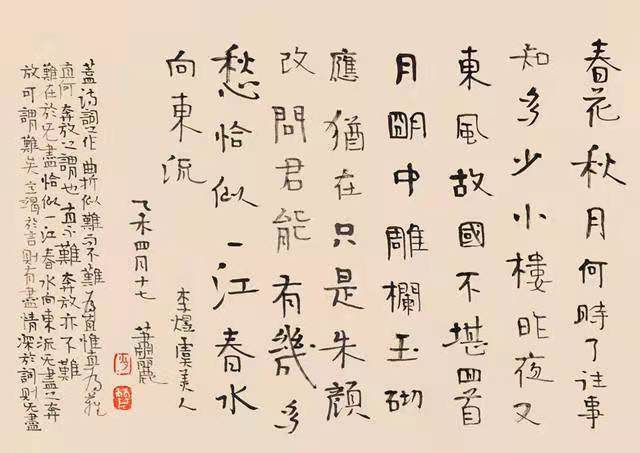 春花秋月何時了往事
知多少小樓昨夜又
東風故國不堪回首
月明中雕欄玉砌
應猶在只是朱顏
改問君能有幾多
愁恰似一江春水
向東流
李煜虞美人
乙未四月十七 蕭麗
蓋詩詞之作曲折似難而不難惟直為難
直何奔放之謂也直不難奔放亦不難
難在於无盡恰似一江春水向東流无盡之奔
放可謂難矣意竭於言則有盡情深於詞則无盡